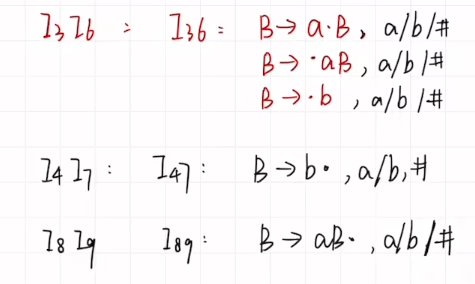 I₃I₆ : I₃₆ : B → a·B, a/b/#
B → ·aB, a/b/#
B → ·b , a/b/#
I₄I₇ : I₄₇ : B → b· , a/b,#
I₈I₉ I₈₉ : B → aB· , a/b/#